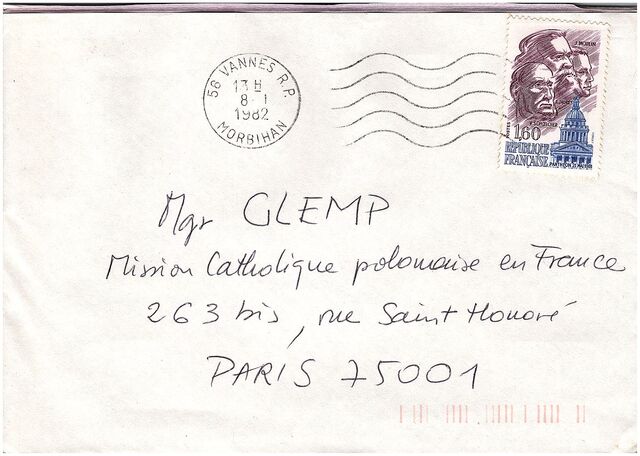 56 VANNES R.P.
13 H
8 - 1
1982
MORBIHAN
J. MOULIN
V. SCHOELCHER
1,60
RÉPUBLIQUE
FRANÇAISE
PANTHEON 21 MAI 1981
Mgr GLEMP
Mission Catholique polonaise en France
263 bis, rue Saint Honoré
PARIS 75001